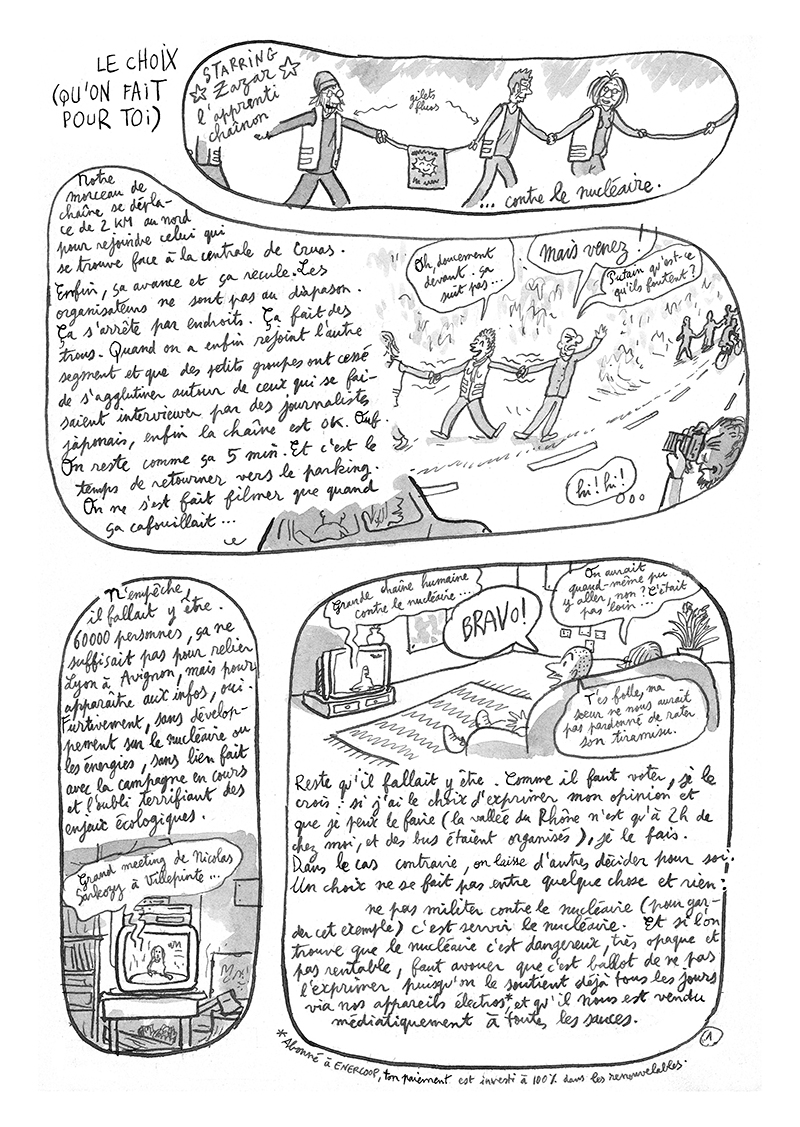 LE CHOIX
(QU'ON FAIT
POUR TOI)
STARRING
Zazar
l'apprenti
chaînon
gilets
fluos
... contre le nucléaire.
Notre
morceau de
chaîne se dépla-
ce de 2 KM au nord
pour rejoindre celui qui
se trouve face à la centrale de Cruas.
Enfin, ça avance et ça recule. Les
organisateurs ne sont pas au diapason.
Ça s'arrête par endroits. Ça fait des
trous. Quand on a enfin rejoint l'autre
segment et que des petits groupes ont cessé
de s'agglutiner autour de ceux qui se fai-
saient interviewer par des journalistes
japonais, enfin la chaîne est OK. Ouf.
On reste comme ça 5 min. Et c'est le
temps de retourner vers le parking.
On ne s'est fait filmer que quand
ça cafouillait...
Oh, doucement
devant. ça
suit pas...
Mais venez !
Putain qu'est-ce
qu'ils foutent ?
hi ! hi !
N'empêche,
il fallait y être.
60000 personnes, ça ne
suffisait pas pour relier
Lyon à Avignon, mais pour
apparaître aux infos, oui.
Furtivement, sans dévelop-
pement sur le nucléaire ou
les énergies, sans lien fait
avec la campagne en cours
et l'oubli terrifiant des
enjeux écologiques.
Grand meeting de Nicolas
Sarkozy à Villepinte...
Grande chaîne humaine
contre le nucléaire...
BRAVO!
On aurait
quand-même pu
y aller, non ? C'était
pas loin...
T'es folle, ma
soeur ne nous aurait
pas pardonné de rater
son tiramisu.
Reste qu'il fallait y être. Comme il faut voter, je le
crois : si j'ai le choix d'exprimer mon opinion et
que je peux le faire (la vallée du Rhône n'est qu'à 2h de
chez moi, et des bus étaient organisés), je le fais.
Dans le cas contraire, on laisse d'autres décider pour soi.
Un choix ne se fait pas entre quelque chose et rien :
ne pas militer contre le nucléaire (pour gar-
der cet exemple) c'est servir le nucléaire. Et si l'on
trouve que le nucléaire c'est dangereux, très opaque et
pas rentable, faut avouer que c'est ballot de ne pas
l'exprimer puisqu'on le soutient déjà tous les jours
via nos appareils électros* et qu'il nous est vendu
médiatiquement à toutes les sauces.
1
*Abonné à ENERCOOP, ton paiement est investi à 100% dans les renouvelables.